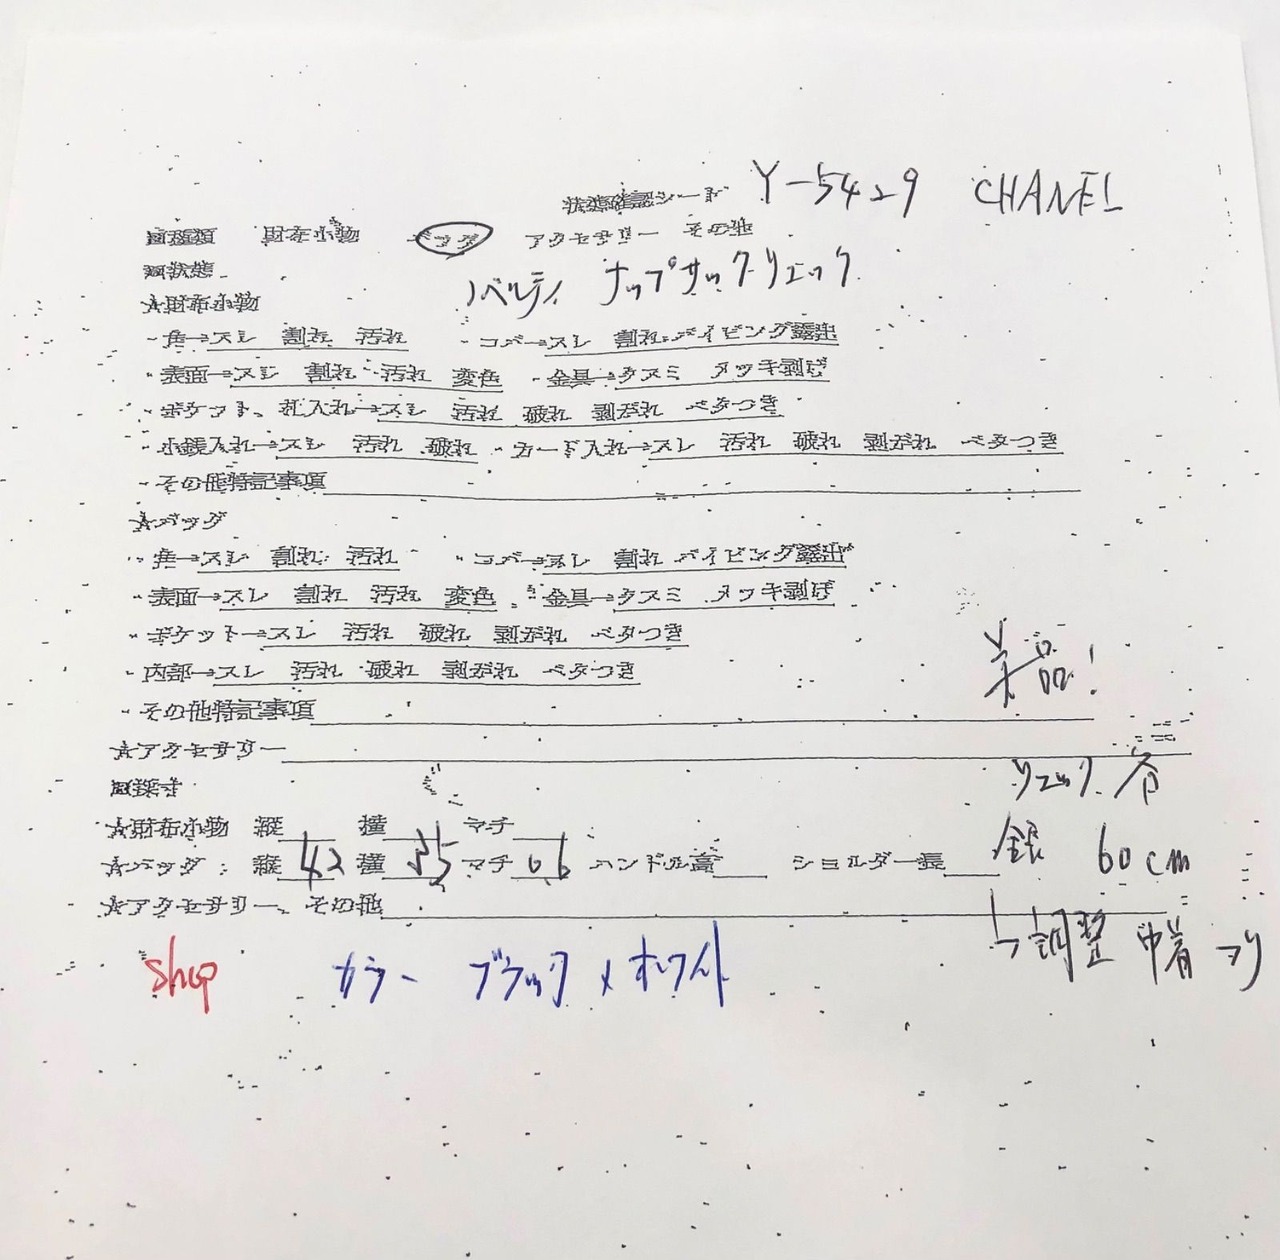 状態確認シート Y-5429 CHANEL
■種類 財布小物 バッグ アクセサリー その他
■状態
ノベルティ ナップサックリュック
★財布小物
・角→スレ 割れ 汚れ ・コバ→スレ 割れ パイピング露出
・表面→スレ 割れ 汚れ 変色 ・金具→クスミ メッキ剥げ
・ポケット、札入れ→スレ 汚れ 破れ 剥がれ ベタつき
・小銭入れ→スレ 汚れ 破れ ・カード入れ→スレ 汚れ 破れ 剥がれ ベタつき
・その他特記事項
★バッグ
・角→スレ 割れ 汚れ ・コバ→スレ 割れ パイピング露出
・表面→スレ 割れ 汚れ 変色 ・金具→クスミ メッキ剥げ
・ポケット→スレ 汚れ 破れ 剥がれ ベタつき
・内部→スレ 汚れ 破れ 剥がれ ベタつき
美品!
・その他特記事項
★アクセサリー
■採寸
リュック
★財布小物 縦 横 マチ
★バッグ: 縦 42 横 35 マチ 06 ハンドル高 ショルダー長 60cm
★アクセサリー、その他
調整 巾着
shop カラー ブラック×ホワイト